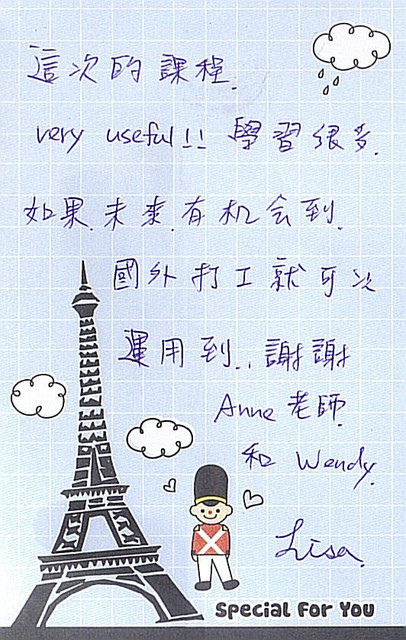 這次的課程.
very useful!! 學習很多.
如果.未來.有机会到.
國外打工就可以
運用到..謝謝
Anne 老師.
和 Wendy.
Lisa.
Special For You